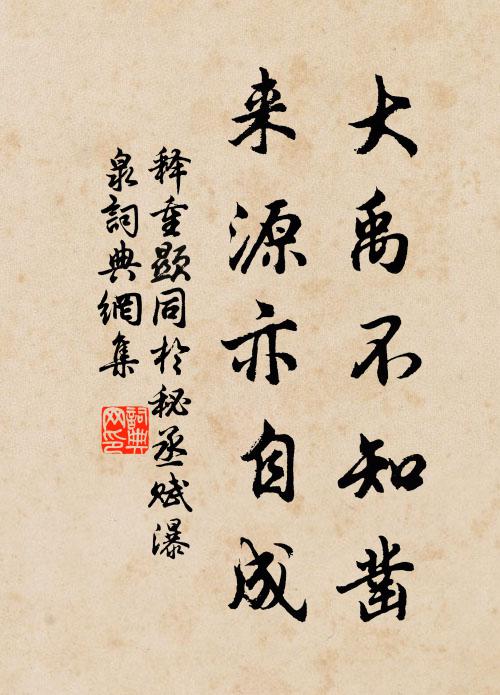 大禹不知凿
来源亦自成
释重显同于秘丞赋瀑
泉詞典網集
詞典网印